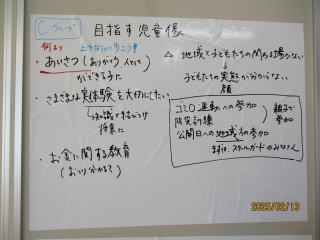 Cグループ 目指す児童像
何より 上を向いて歩こう!!
・あいさつ(ありがとう、
ができる子に
・さまざまな実体験を大切にしたい
将来に
・お金に関する教育
(おつり分かる?)
△ 地域と子どもたちの関わる場がない
→子どもたちの実態が分からない
顔
コミ口運動への参加
防災訓練
親子で
参加
公開日への地域の方の参加
まずは、スクールガードのみなさん
2025/02/13